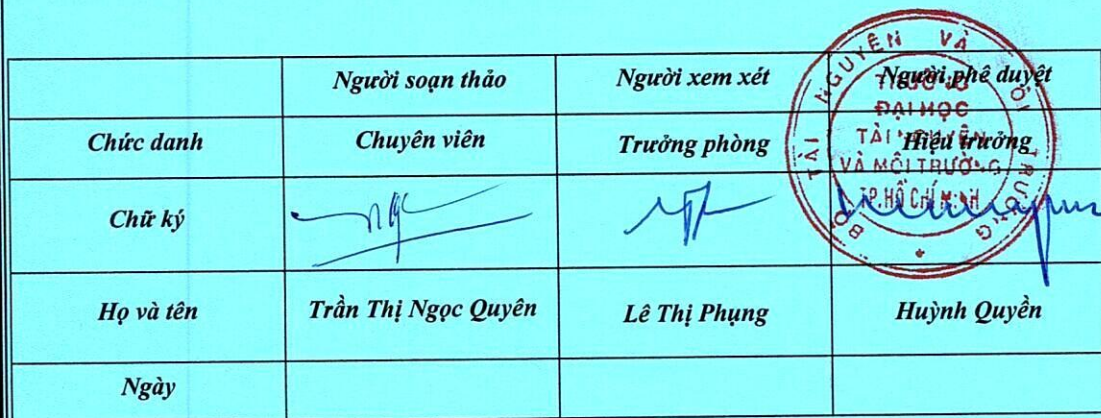 Người soạn thảo Người xem xét Người phê duyệt
Chức danh Chuyên viên Trưởng phòng Hiệu trưởng
Chữ ký
Họ và tên Trần Thị Ngọc Quyên Lê Thị Phụng Huỳnh Quyền
Ngày
BỘ TÀI NGUYÊN VÀ MÔI TRƯỜNG
TRƯỜNG
ĐẠI HỌC
TÀI NGUYÊN
VÀ MÔI TRƯỜNG
TP.HỒ CHÍ MINH